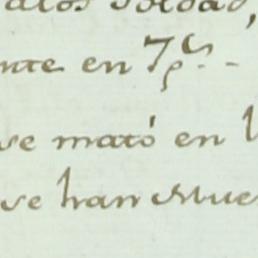 a los Soldad,
nte en 7.s -
se mató en l
se han Mue